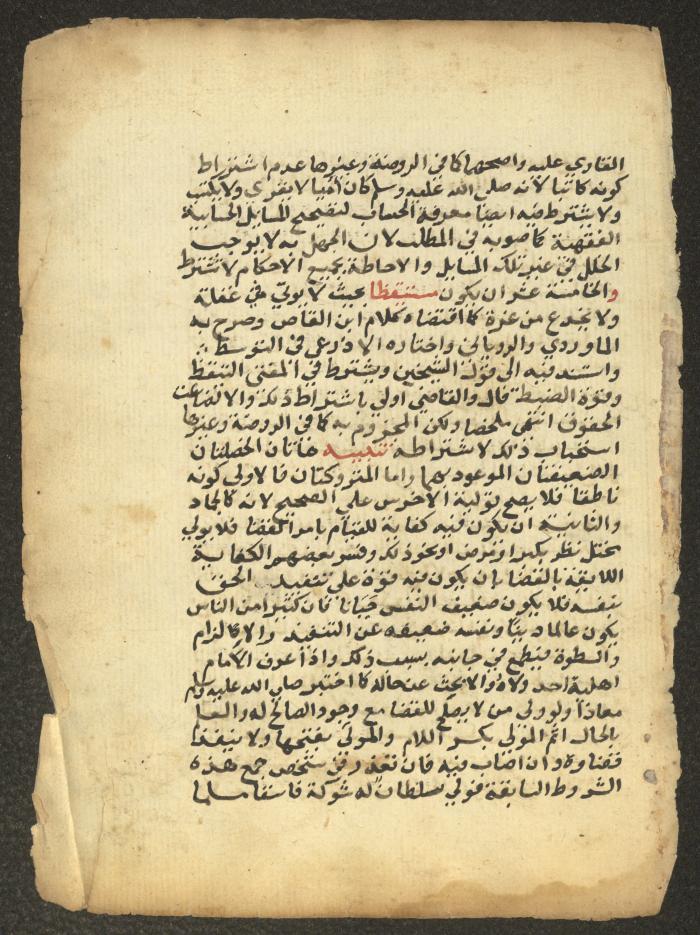 القاري عليه واصحهما كما في الروضة وغيرها عدم اشتراط
كونه كاتبا لانه صلى الله عليه وسلم كان أميا لا يقرى ولا يكتب
ولا يشترط فيه ايضا معرفة الحساب لتصحيح المسايل الحسابية
الفقهية كما صوبه في المطلب لان الجهل به لا يوجب
الخلل في غير تلك المسايل والاحاطة بجميع الاحكام لا تشترط
والخامسة عشر ان يكون مستيقظا بحيث لا يوتي في غفلة
ولا يخدع من غرة كما اقتضاه كلام ابن القاص وصرح به
الماوردي والروياني واختاره الاذرعي في التوسط
واستند فيه الى قول الشيخين ويشترط في المفتي التيقظ
وقوة الضبط قال والقاضي اولي باشتراط ذلك والا لضاعت
الحقوق انتهى ملخصا ولكن المجزوم به كما في الروضة وغيرها
استحباب ذلك لا اشتراطه تنبيه هاتان الخصلتان
الضعيفتان الموعود بهما واما المتروكتان فالاولى كونه
ناطقا فلا يصح تولية الاخرس على الصحيح لانه كالجماد
والثانية ان يكون فيه كفاية للقيام بامر القضا فلا يولي
مختل نظر بكبر او مرض او نحو ذلك وفسر بعضهم الكفاية
اللايقة بالقضا بان يكون فيه قوة على تنفيذ الحق
بنفسه فلا يكون ضعيف النفس جبانا فان كثيرا من الناس
يكون عالما دينا ونفسه ضعيفه عن التنفيذ والالزام
والسطوة فيطمع في جانبه بسبب ذلك واذا عرف الامام
اهلية احد ولاه والا بحث عن حاله كما اختبر صلى الله عليه وسلم
معاذا ولو ولي من لا يصلح للقضا مع وجود الصالح له والعلم
بالحال اثم المولي بكسر اللام والمولى بفتحها ولا ينفذ
قضاوه وان اصاب فيه فان تعذر في شخص جمع هذه
الشروط السابقة فولي سلطان له شوكة فاسقا مسلما